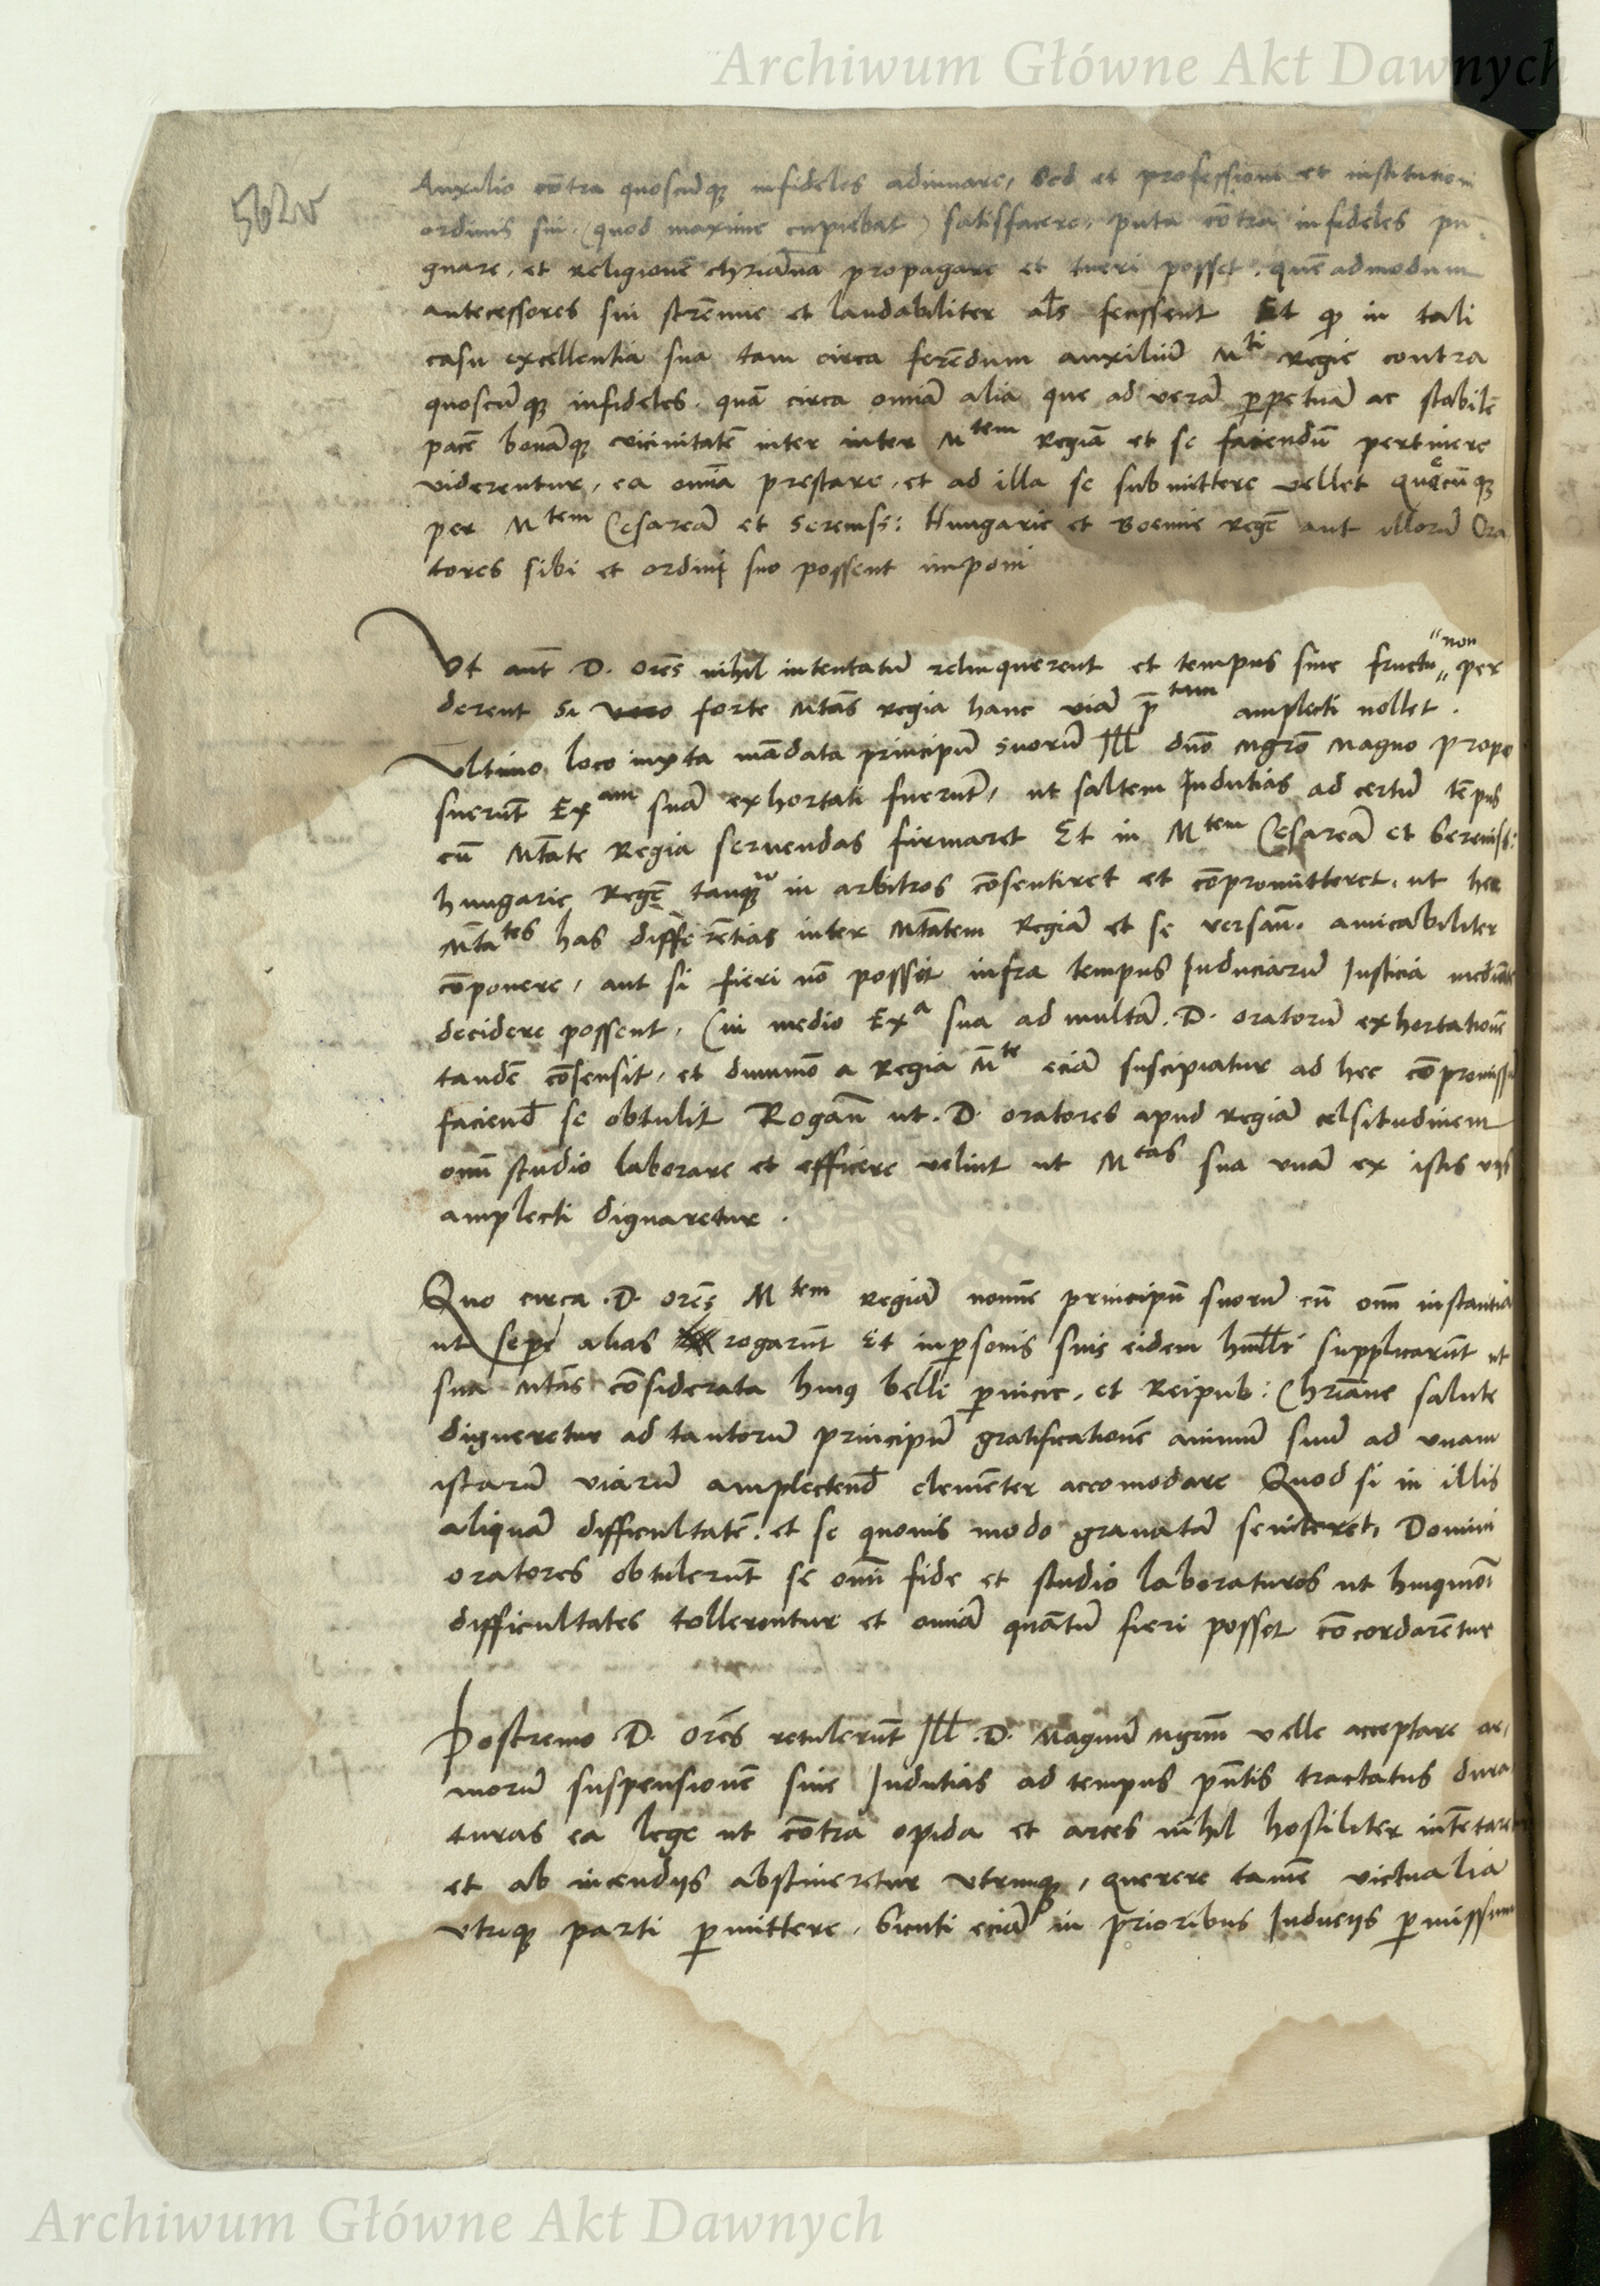 Archiwum Główne Akt Dawnych
562v
Auxilio cōtra quoscūq̨ infideles adiuuare, Sed et professioni et institutioni
ordinis sui (quod maxime cupiebat) satisfacere, puta cōtra infideles pu-
gnare, et religionē chriāna propagare et tueri posset, quēadmodum
antecessores sui strēnue et laudabiliter als fecissent Et ꝙ in tali
casu excellentia sua tam circa ferēdum auxiliū Mti Regie contra
quoscūq̨ infideles, quā circa omīa alia que ad verā ꝑpetuā ac stabilē
pacē bonāq̨ vicinitatē inter inter Mtem Regiā et se faciendū pertinere
viderentur, ea omīa prestare, et ad illa se submittere vellet quecūq̨
per Mtem Cesareā et Sereniss: Hungarie et Boemie Regē aut illorū Ora
tores sibi et ordini suo possent imponi
Vt aūt D. orēs nihil intentatū relinquerent et tempus sine fructu non per
derent Si vero forte Mtās regia hanc viā p̄tam amplecti nollet.
Vltimo loco iuxta mādata principū suorū Ill dnō Mgrō Magno propo
suerūt Exam suā exhortati fuerūt, ut saltem Indutias ad certū tēpus
cū Mtāte Regia seruendas firmaret Et in Mtem Cesareā et Sereniss:
hungarie Regē tanq̨ in arbitros cōsentiret et cōpromitteret, ut hee
Mtātes has differētias inter Mtātem Regiā et se versañ. amicabiliter
cōponere, aut si fieri nō possit infra tempus Induciarū Justicia mediāte
decidere possent, Cui medio Exa sua ad multā. D. oratorū exhortationē
tandē cōsensit, et dummō a Regia Mte eciā suscipiatur ad hec cōpromissū
faciend̄ se obtulit Rogañ ut. D. oratores apud regiā celsitudinem
omī studio laborare et efficere velint ut Mtas sua vnā ex istis vijs
amplecti dignaretur.
Quo circa .D. orēs Mtem regiā nomīe principū suorū cū omī instantia
ut sepe alias rogarūt Et in ꝑsonis suis eidem humllr̄ supplicarūt ut
sua Mtās cōsiderata huius belli ꝑnicie, et Reipub: Chriāne salute
digneretur ad tantorū principū gratificationē animū suū ad vnam
istarū viarū amplectend̄ clemēter accomodare Quod si in illis
aliquā difficultatē, et se quouis modo grauatā sentiret, Domini
oratores obtulerūt se omī fide et studio laboraturos ut huiusmōi
difficultates tollerentur et omīa quātū fieri posset cōcordarētur
Postremo D. Orēs retulerūt Ill. D. Magnū Mgrm̄ velle acceptare ar,
morū suspensionē siue Indutias ad tempus pn̄tis tractatus dura
turas ea lege ut cōtra opida et arces nihil hostiliter intētaretur
et ab incendijs abstineretur vtrinq̨, querere tamē victualia
vtriq̨ parti ꝑmittere, Sicuti eciā in prioribus Inducijs ꝑmissum
Archiwum Główne Akt Dawnych